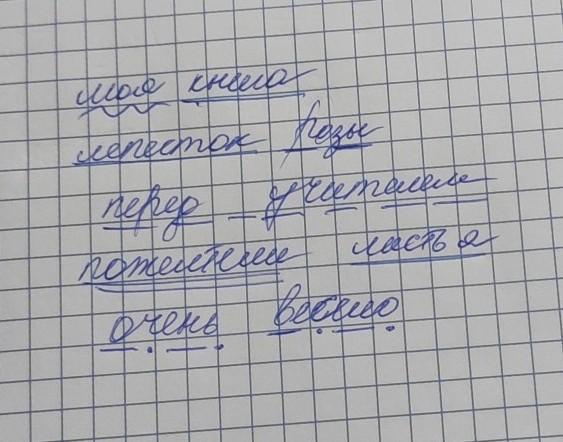 моя книга
лепесток розы
перед учителем
пожелтели листья
очень весело